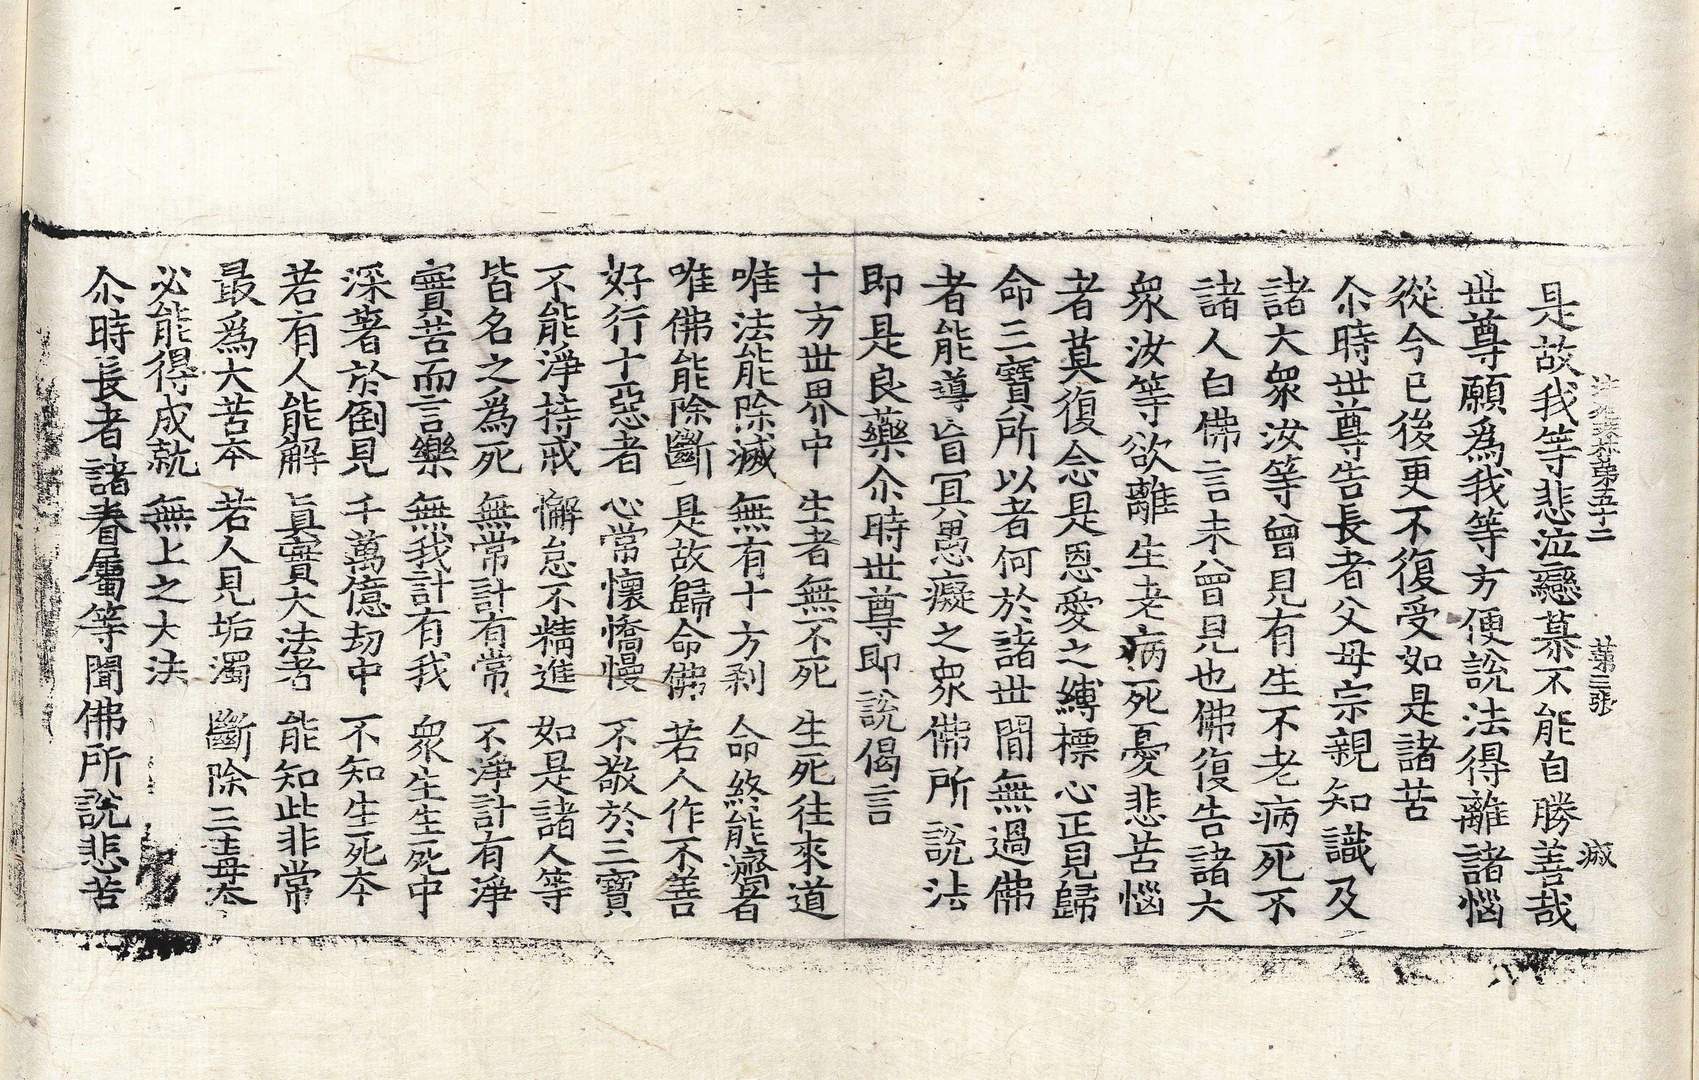 法苑珠林第五十二 第三張
是故我等悲泣戀慕不能自勝善哉
世尊願爲我等方便說法得離諸惱
從今已後更不復受如是諸苦
尒時世尊告長者父母宗親知識及
諸大衆汝等曾見有生不老病死不
諸人白佛言未曾見也佛復告諸大
衆汝等欲離生老病死憂悲苦惱
者莫復念是恩愛之縛標心正見歸
命三寶所以者何於諸世閒無過佛
者能導盲冥愚癡之衆佛所說法
即是良藥尒時世尊即說偈言
十方世界中 生者無不死 生死往來道
唯法能除滅 無有十方剎 命終能濟者
唯佛能除斷 是故歸命佛 若人作不善
好行十惡者 心常懷憍慢 不敬於三寶
不能淨持戒 懈怠不精進 如是諸人等
皆名之爲死 無常計有常 不淨計有淨
實苦而言樂 無我計有我 衆生生死中
深著於倒見 千萬億劫中 不知生死本
若有人能解 眞實大法者 能知此非常
最爲大苦本 若人見垢濁 斷除三毒本
必能得成就 無上之大法
尒時長者諸眷屬等聞佛所說悲苦